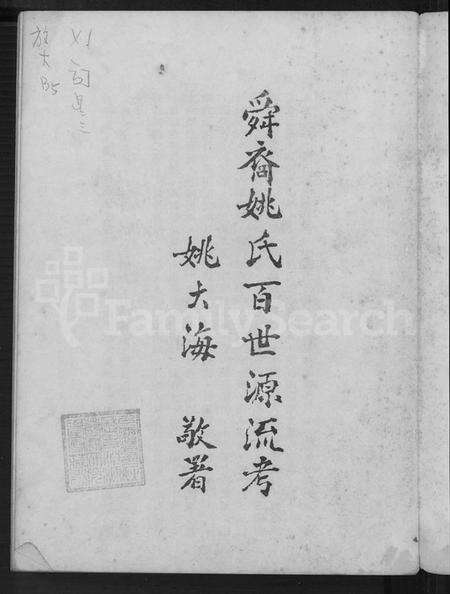 舜裔姚氏百世源流考
姚大海 敬著
放大B5
FamilySearch